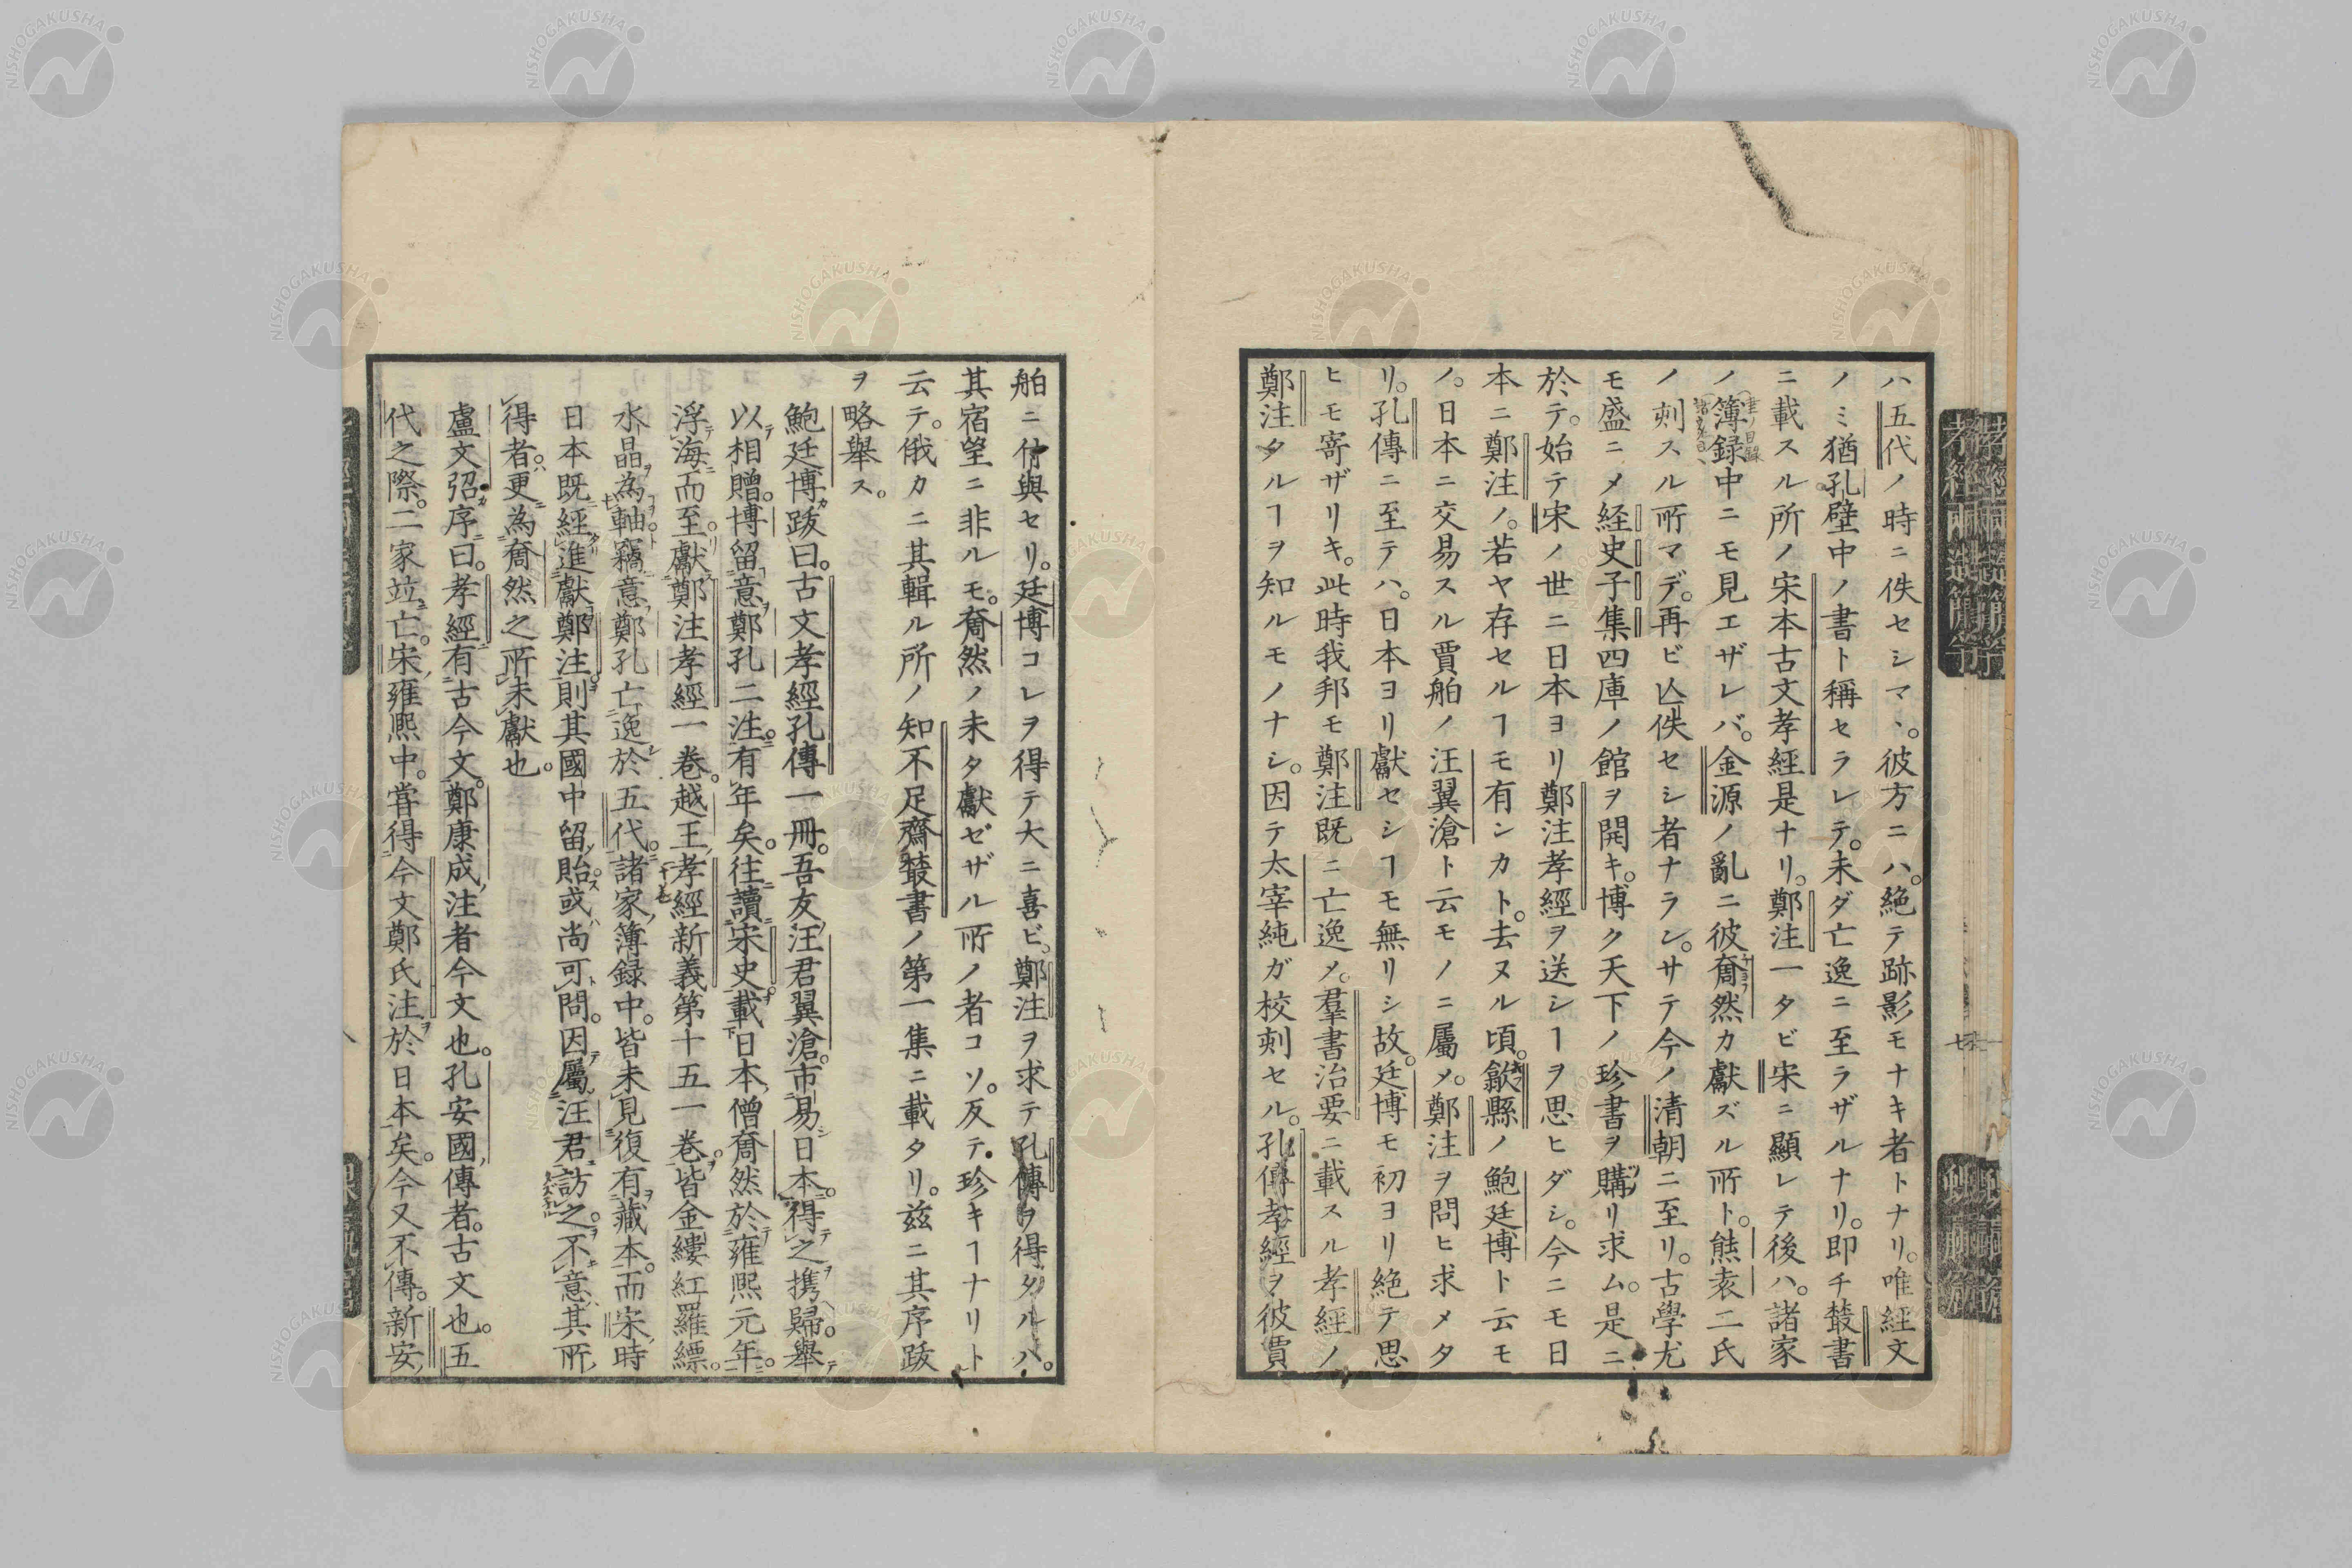 ハ五代ノ時ニ佚セシマヽ。彼方ニハ。絶テ跡影モナキ者トナリ。唯經文
ノミ猶孔壁中ノ書ト稱セラレテ。未ダ亡逸ニ至ラザルナリ。即チ叢書
ニ載スル所ノ宋本古文孝經是ナリ。鄭注一タビ宋ニ顯レテ後ハ。諸家
ノ簿録中ニモ見エザレバ。金源ノ亂ニ彼奝然カ獻ズル所ト。熊袁二氏
ノ刻スル所マデ。再ビ亾佚セシ者ナラン。サテ今ノ清朝ニ至リ。古學尤
モ盛ニメ経史子集四庫ノ館ヲ開キ。博ク天下ノ珍書ヲ購リ求ム。是ニ
於テ。始テ宋ノ世ニ日本ヨリ鄭注孝經ヲ送シヿヲ思ヒダシ。今ニモ日
本ニ鄭注ノ。若ヤ存セルヿモ有ンカト。去ヌル頃。歙縣ノ鮑廷博ト云モ
ノ。日本ニ交易スル賈舶ノ汪翼滄ト云モノニ屬メ。鄭注ヲ問ヒ求メタ
リ。孔傳ニ至テハ。日本ヨリ獻セシヿモ無リシ故。廷博モ初ヨリ絶テ思
ヒモ寄ザリキ。此時我邦モ鄭注既ニ亡逸メ。羣書治要ニ載スル孝經ノ
鄭注タルヿヲ知ルモノナシ。因テ太宰純ガ校刻セル。孔傳孝經ヲ彼賈
舶ニ付與セリ。廷博コレヲ得テ大ニ喜ビ。鄭注ヲ求テ孔傳ヲ得タルハ。
其宿望ニ非ルモ。奝然ノ未タ獻ゼザル所ノ者コソ。反テ珍キヿナリト
云テ。俄カニ其輯ル所ノ知不足齋叢書ノ第一集ニ載タリ。茲ニ其序跋
ヲ略舉ス。
鮑廷博跋曰。古文孝經孔傳一冊。吾友汪君翼滄。市易日本。得之携歸。舉
以相贈。博留意鄭孔二注。有年矣。往讀宋史。載日本僧奝然於雍熙元年。
浮海而至。獻鄭注孝經一卷。越王孝經新義第十五一卷。皆金縷紅羅縹。
水晶為軸。竊意鄭孔亡逸於五代。諸家簿録中。皆未見復有藏本。而宋時
日本既經進獻鄭注。則其國中留貽。或尚可問。因屬汪君訪之。不意其所
得者。更為奝然之所未獻也。
盧文弨序曰。孝經有古今文。鄭康成注者今文也。孔安國傳者。古文也。五
代之際。二家竝亡。宋雍熙中。甞得今文鄭氏注於日本矣。今又不傳。新安